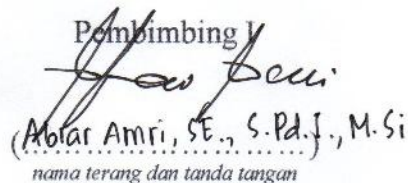 Pembimbing I
(Abrar Amri, SE., S.Pd.I., M.Si
nama terang dan tanda tangan